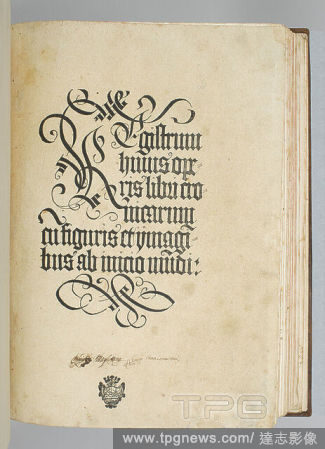 Registrum
huius ope-
ris libri cro
nicarum
cū figuris et ymagī-
bus ab inicio mūdi:
TPG
www.tpgnews.com / 達志影像